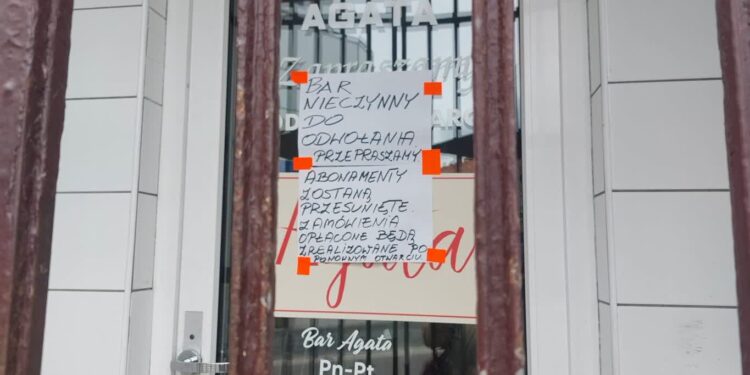 AGATA
Zapraszamy
BAR
NIECZYNNY
DO
ODWOŁANIA
PRZEPRASZAMY
ABONAMENTY
ZOSTANĄ
PRZESUNIĘTE.
ZAMÓWIENIA
OPŁACONE BĘDĄ
ZREALIZOWANE PO
PONOWNYM OTWARCIU
Agata
Bar Agata
Pn-Pt